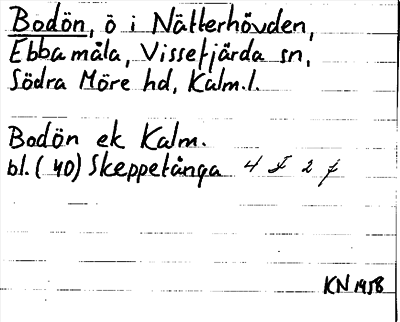 Bodön, ö i Nätterhövden,
Ebbamåla, Vissefjärda sn,
Södra Möre hd, Kalm.l.
Bodön ek Kalm.
bl. (40) Skeppetånga 4 I 2 f
KN 1958